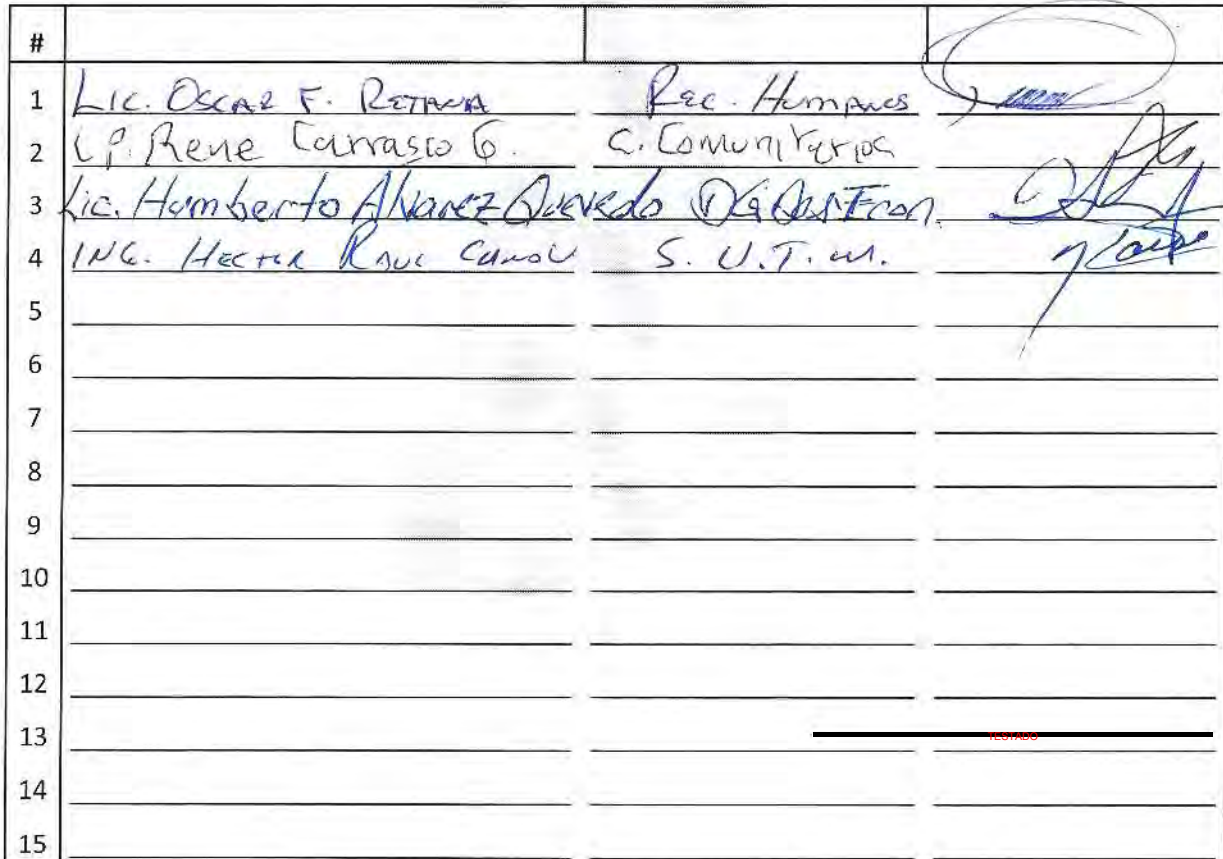 #
1 Lic. Oscar F. Retana Rec. Humanos
2 C.P. Rene Carrasco G. C. Comunitarios
3 Lic. Humberto Alvarez Quevedo
4 ING. Hector Raul S. U. T. M.
5
6
7
8
9
10
11
12
13 TESTADO
14
15